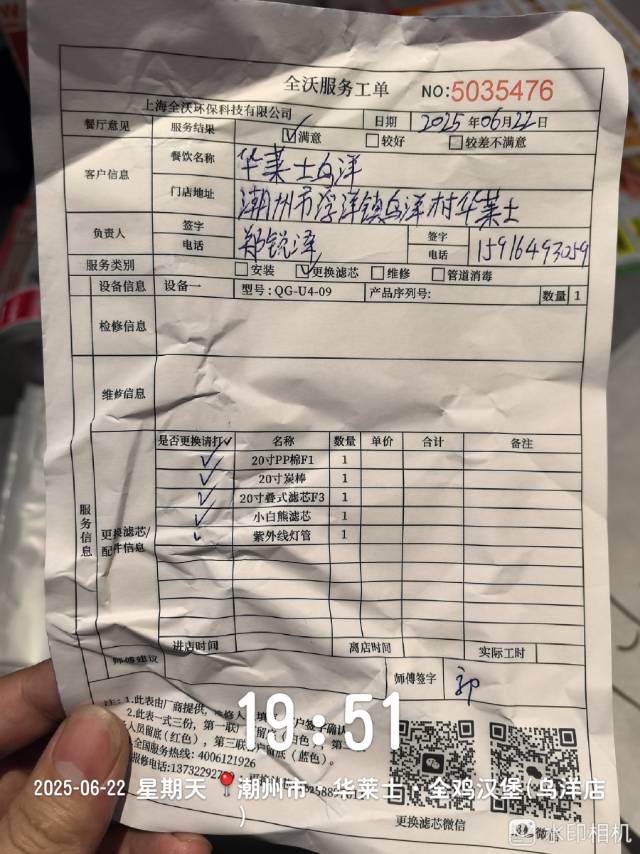 全沃服务工单 NO:5035476
上海全沃环保科技有限公司 日期 2025年06月22日
餐厅意见 服务结果 ☑满意 □较好 □较差不满意
客户信息 餐饮名称 华莱士乌洋
门店地址 潮州市浮洋镇乌洋村华莱士
负责人 签字 郑锐泽 签字
电话 电话 15916493059
服务类别 □安装 ☑更换滤芯 □维修 □管道消毒
设备信息 设备一 型号:QG-U4-09 产品序列号: 数量 1
检修信息
维修信息
服务信息
更换滤芯/配件信息
是否更换请打✓ 名称 数量 单价 合计 备注
✓ 20寸PP棉F1 1
✓ 20寸炭棒 1
✓ 20寸叠式滤芯F3 1
✓ 小白熊滤芯 1
✓ 紫外线灯管 1
进店时间 离店时间 实际工时
师傅建议 师傅签字 郭
注:1.此表由厂商提供,
2.此表一式三份,第一联厂
人员留底(红色),第三联 户留底(蓝色)。
全国服务热线:4006121926
更换滤芯微信 微信
19:51
2025-06-22 星期天 潮州市·华莱士·全鸡汉堡(乌洋店
)
水印相机